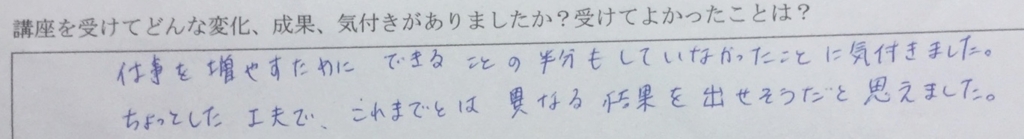 講座を受けてどんな変化、成果、気付きがありましたか?受けてよかったことは?
仕事を増やすために できることの半分もしていなかったことに気付きました。
ちょっとした工夫で、これまでとは異なる結果を出せそうだと思えました。